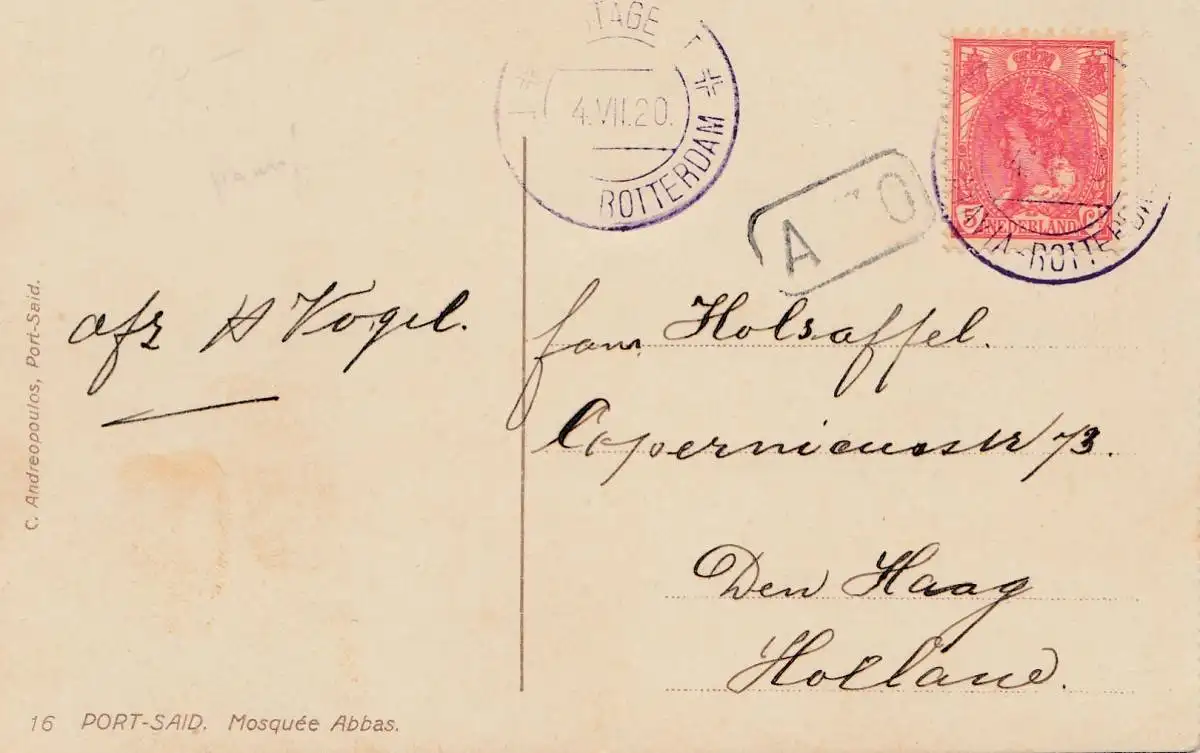 TAGE
4.VII.20.
ROTTERDAM
A O
5 NEDERLAND C
VIA-ROTTERDA
afz H Vogel.
fam. Holsaffel.
Copernicusstr 73.
Den Haag
Holland.
C. Andreopoulos, Port-Said.
16 PORT-SAID. Mosquée Abbas.